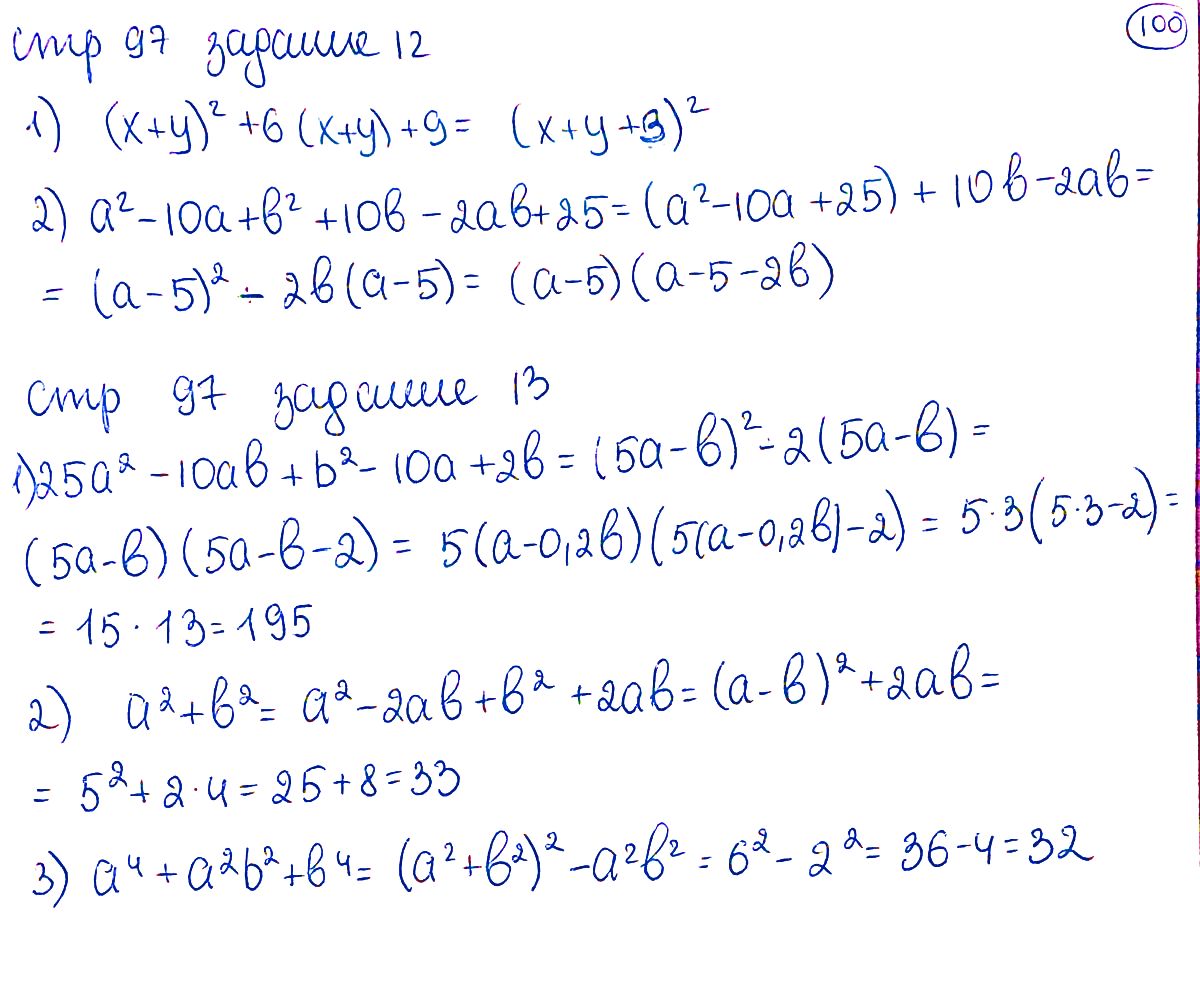 100
стр 97 задание 12
1) (x+y)² +6 (x+y) +9 = (x+y+3)²
2) a² - 10a + b² + 10b - 2ab + 25 = (a² - 10a + 25) + 10b - 2ab =
= (a - 5)² - 2b (a - 5) = (a - 5) (a - 5 - 2b)
стр 97 задание 13
1) 25a² - 10ab + b² - 10a + 2b = (5a - b)² - 2 (5a - b) =
(5a - b) (5a - b - 2) = 5(a - 0,2b) (5(a - 0,2b) - 2) = 5·3 (5·3 - 2) =
= 15 · 13 = 195
2) a² + b² = a² - 2ab + b² + 2ab = (a - b)² + 2ab =
= 5² + 2·4 = 25 + 8 = 33
3) a⁴ + a²b² + b⁴ = (a² + b²)² - a²b² = 6² - 2² = 36 - 4 = 32